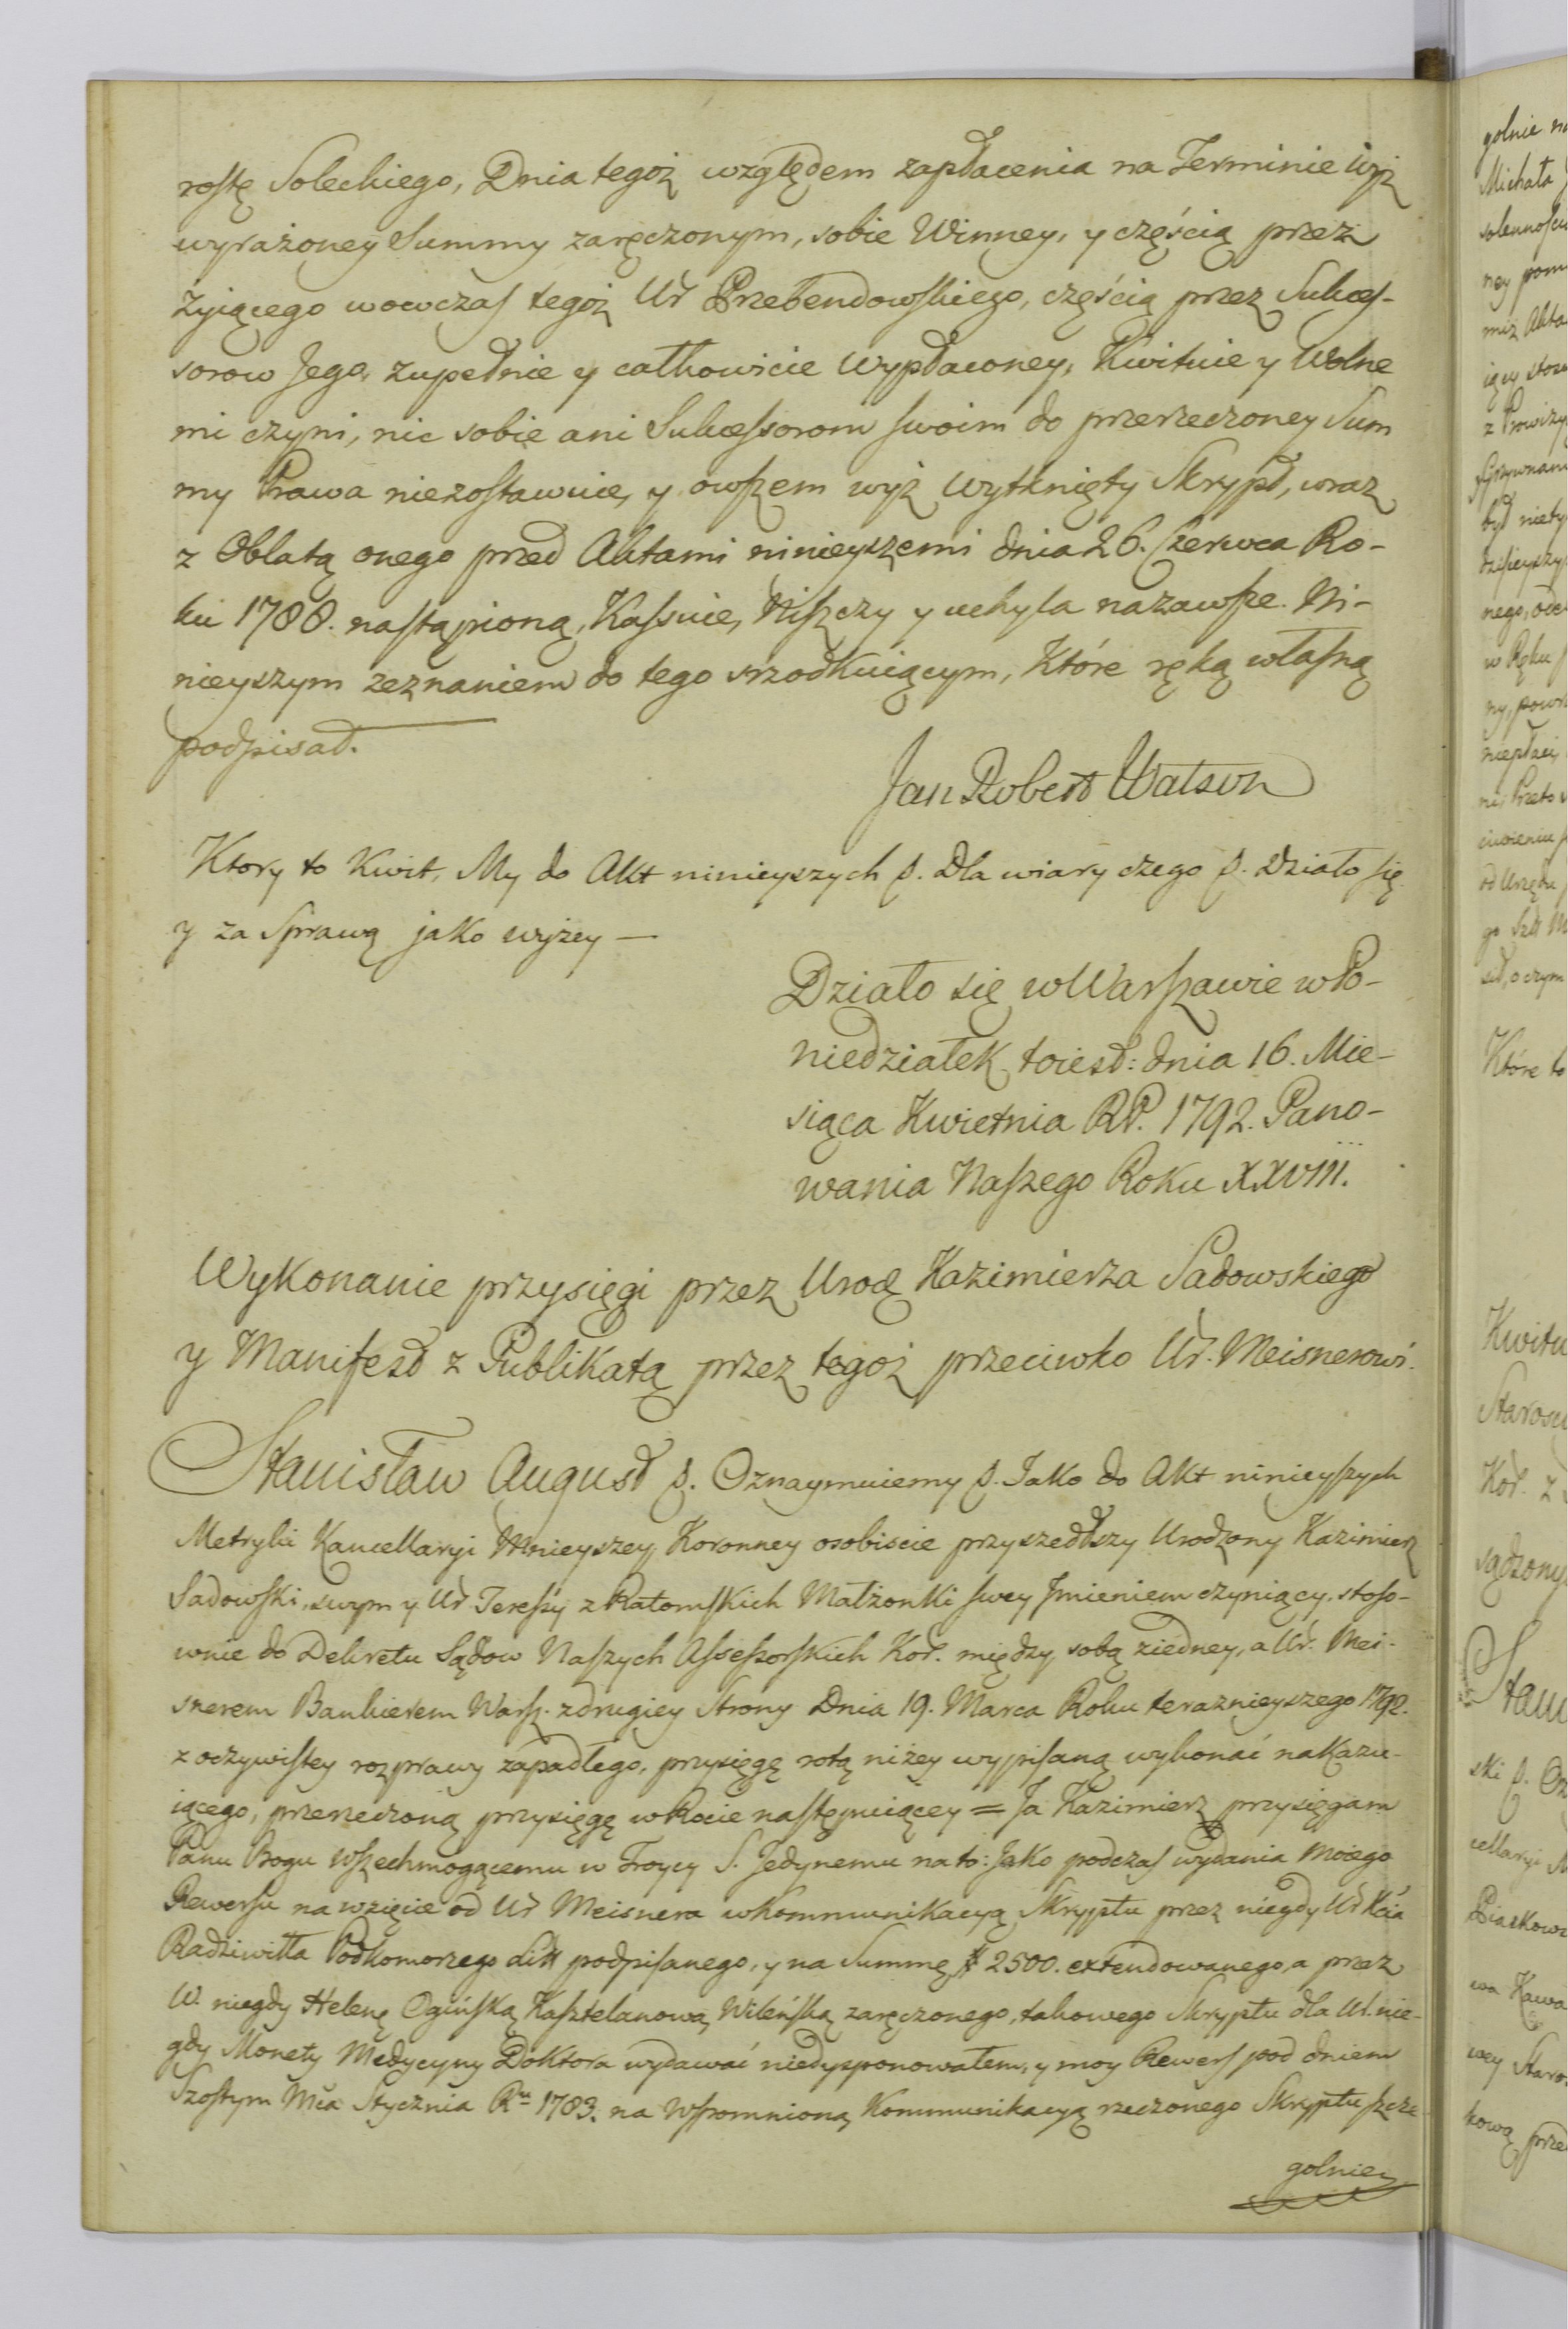 rostę Soleckiego, Dnia tegoż względem zapłacenia na Terminie wyż
wyrażoney Summy zaręczonym, sobie Winney, y częścią przez
żyiącego wowczas tegoż Ur Przebendowskiego, częścią przez Sukces-
sorow Jego, zupełnie y całkowicie wypłaconey, Kwituie y Wolne
mi czyni, nic sobie ani Sukcessorom swoim do przerzeczoney Sum
my Prawa niezostawuie, y owszem wyż wytknięty Skrypt, wraz
z Oblatą onego przed Aktami ninieyszemi dnia 26. Czerwca Ro-
ku 1788. nastąpioną, Kassuie, Niszczy y uchyla nazawsze. Ni-
nieyszym zeznaniem do tego srzodkuiącym, Które ręką własną
podpisał.
Jan Robert Watson
Ktory to Kwit, My do Akt ninieyszych p. Dla wiary czego p. Działo się
y za Sprawą jako wyżey —
Działo się w Warszawie w Po-
niedziałek toiest: dnia 16. Mie-
siąca Kwietnia RP. 1792. Pano-
wania Naszego Roku XXVIII.
Wykonanie przysięgi przez Urod Kazimierza Sadowskiego
y Manifest z Publikatą przez tegoż przeciwko Ur. Meisnerowi.
Stanisław August p. Oznaymuiemy p. Jako do Akt ninieyszych
Metryki Kancellaryi Mnieyszey Koronney osobiscie przyszedłszy Urodzony Kazimierz
Sadowski, swym y Ur Teressy z Ratomskich Małżonki swey Jmieniem czyniący, stoso-
wnie do Dekretu Sądow Naszych Assessorskich Kor. między sobą ziedney, a Ur. Mei-
snerem Bankierem Warsz. zdrugiey Strony Dnia 19. Marca Roku terazniejszego 1792.
z oczywistey rozprawy zapadłego, przysięgę rotą niżey wypisaną wykonać nakazu-
iącego, przerzeczoną przysięgę w Rocie następuiącey = Ja Kazimierz przysięgam
Panu Bogu wszechmogącemu w Troycy S. Jedynemu na to: Jako podczas wydania mojego
Rewersu na wzięcie od Ur Meisnera w kommunikacyą Skryptu przez niegdy Ur Kcia
Radziwiłła Podkomorzego Litt podpisanego, y na Summę # 2500. extendowanego, a przez
W. niegdy Helenę Ogińską Kasztelanową Wileńską zaręczonego, takowego Skryptu dla Ur. nie-
gdy Monety Medycyny Doktora wydawać niedysponowałem, y moy Rewers pod dniem
Szostym Mca Stycznia Ru 1783. na wspomnioną Kommunikacyą rzeczonego Skryptu szcze
golnie
golnie
Michała
Które to
Kwitu
Kor. z
sądzony